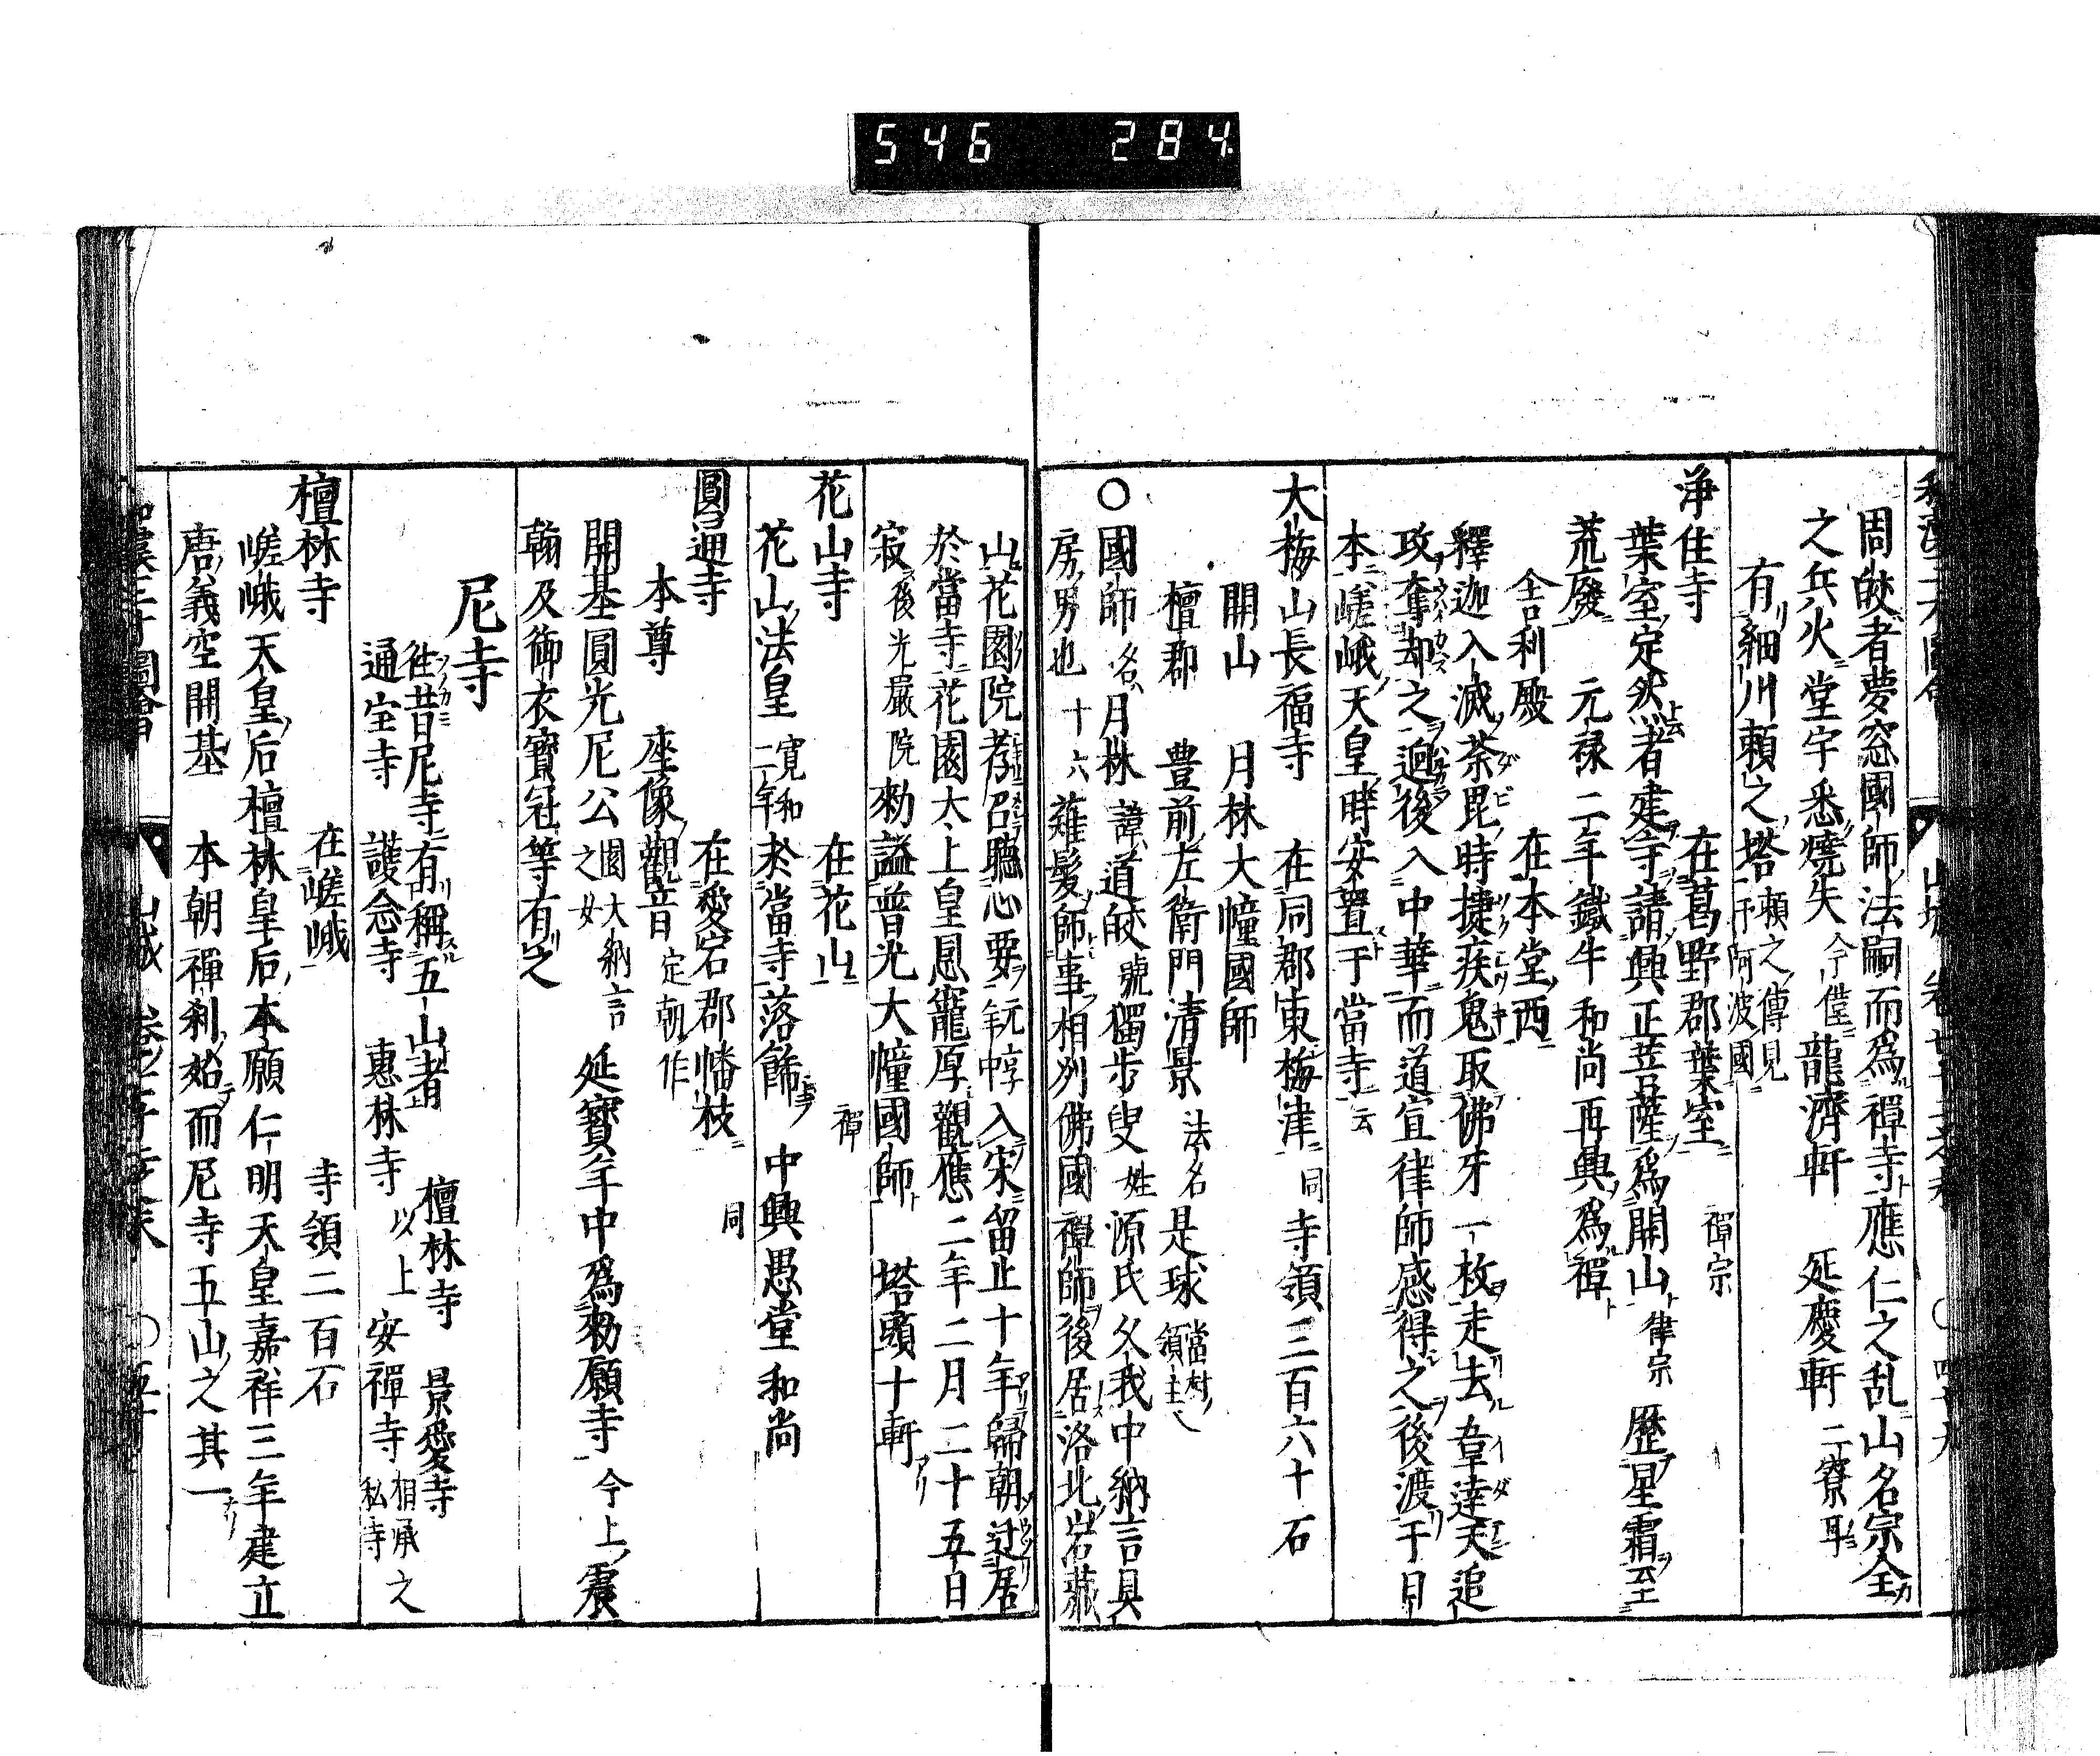 546 284
周皎者夢窓國師法嗣而爲禪寺應仁之乱山名宗全カ
之兵火堂宇悉燒失今僅龍濟軒 延慶軒二寮耳
有細川頼之塔頼之傳見于阿波國
浄住寺 在葛野郡葉室 禪宗
葉室定然法名者建寺請興正菩薩爲開山律宗歷星霜至
荒廢 元禄二年鐵牛和尚再興爲禪
舎利殿 在本堂西
釋迦入滅荼毘時捷疾鬼取佛牙一枚走去韋達天追
攻奪却之廻後入中華而道宣律師感得之後渡于日
本嵯峨天皇時安置于當寺云
大梅山長福寺 在同郡東梅津 同 寺領三百六十石
開山 月林大幢國師
檀郡 豊前左衛門清景 法名是球 當村領主也
○國師名月林諱道皎號獨步叟姓源氏久我中納言具
房男也十六薙髮師事相列佛國禪師後居洛北岩藏
山花園院孝召聽心要元享年中入宋留止十年歸朝迁居
於當寺花園太上皇恩寵厚觀應二年二月二十五日
寂後光嚴院勅諡普光大幢國師 塔頭十軒
花山寺 在花山 禪
花山法皇寛和二年於當寺落餝 中興愚堂和尚
圓通寺 在愛宕郡幡枝 同
本尊 座像觀音定朝作
開基圓光尼公園大納言之女 延寶年中爲勅願寺 今上震
翰及御衣寶冠等有之
尼寺
徃昔尼寺有稱五山者 檀林寺 景愛寺
通玄寺 護念寺 惠林寺 以上 安禪寺相承之私寺
檀林寺 在嵯峨 寺領二百石
嵯峨天皇后檀林皇后本願仁明天皇嘉祥三年建立
唐義空開基 本朝禪刹始而尼寺五山之其一